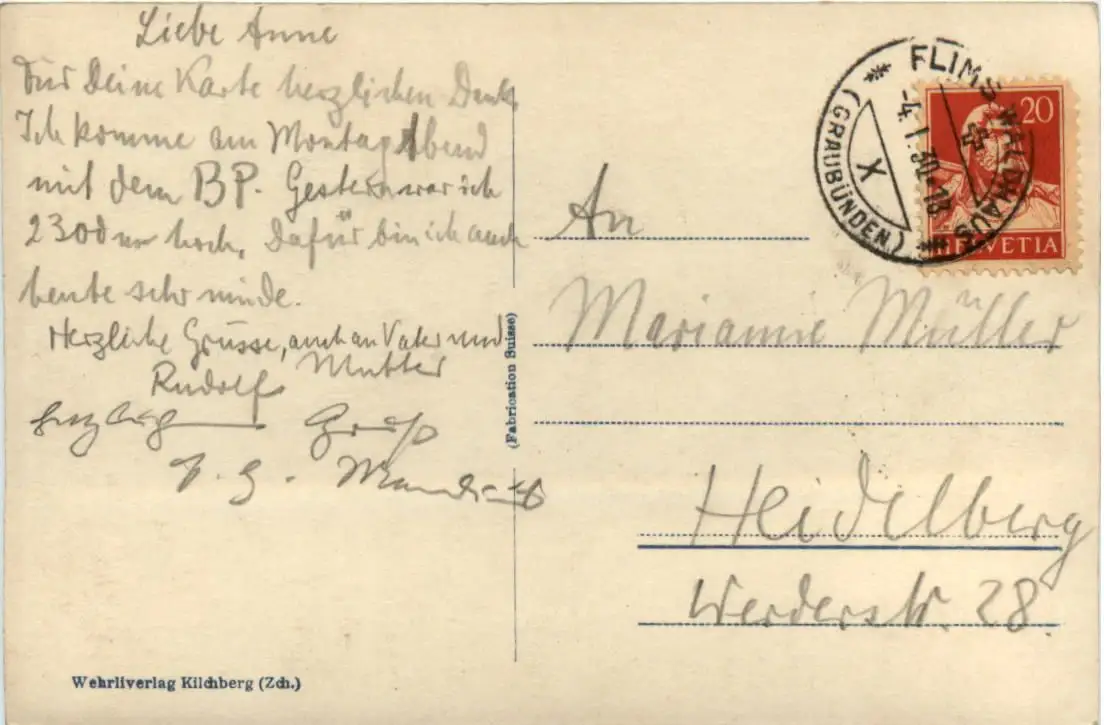 Liebe Anne
Für Deine Karte herzlichen Dank.
Ich komme am Montag Abend
mit dem BP. Gestern war ich
2300 m hoch. Dafür bin ich auch
heute sehr müde.
Herzliche Grüsse, auch an Vater und
Mutter
Rudolf
Gruß
(Fabrication Suisse)
Wehrliverlag Kilchberg (Zch.)
FLIMS WALDHAUS
-4.I.30-18
X
(GRAUBÜNDEN)
20
HELVETIA
An
Marianne Müller
Heidelberg
Werderstr. 28.